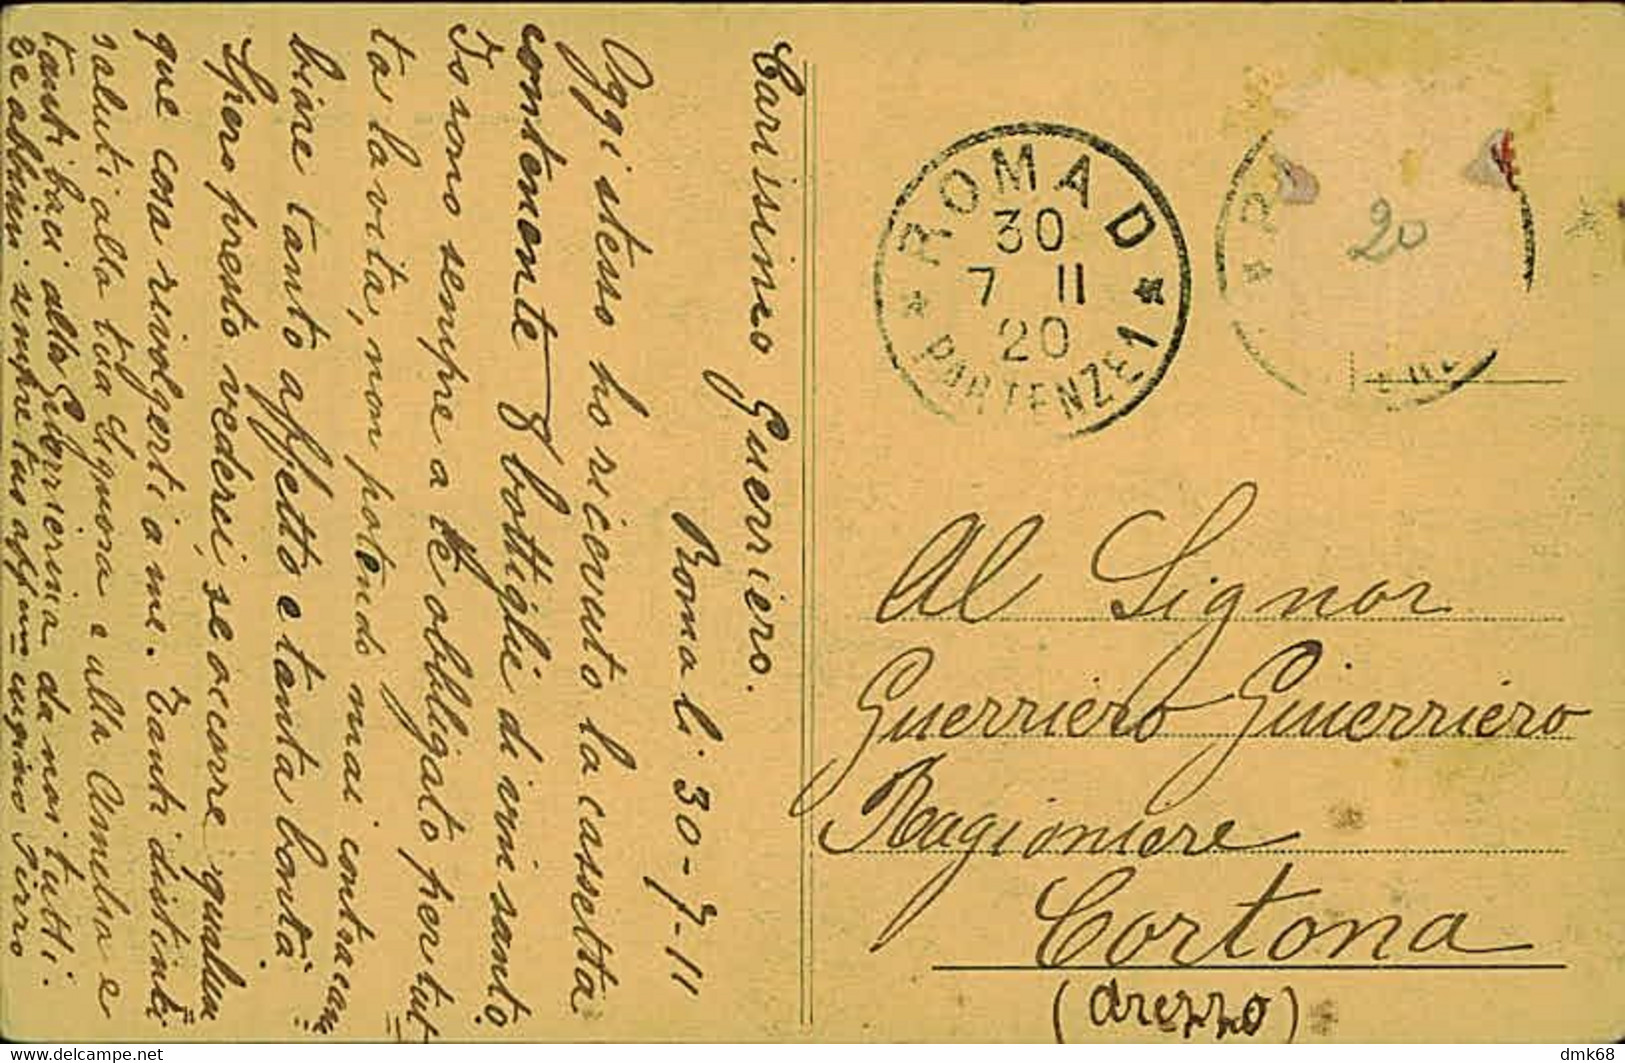 Carissimo Guerriero.
Roma li 30-7-11
Oggi stesso ho ricevuto la cassetta
contenente 8 bottiglie di vin santo
Io sono sempre a te obbligato per tut=
ta la vita, non potendo mai contracam=
biare tanto affetto e tanta bontà
Spero presto vederci, se occorre qualun=
que cosa rivolgerti a me. Tanti distinti
saluti alla tua Signora e alla Amelia e
tanti baci alla Guerrierina da noi tutti.
sempre tuo aff.mo cugino Pirro
ROMA D
30
7 11
20
PARTENZE 1
20
Al Signor
Guerriero Guerriero
Ragioniere
Cortona
(Arezzo)
dmk68